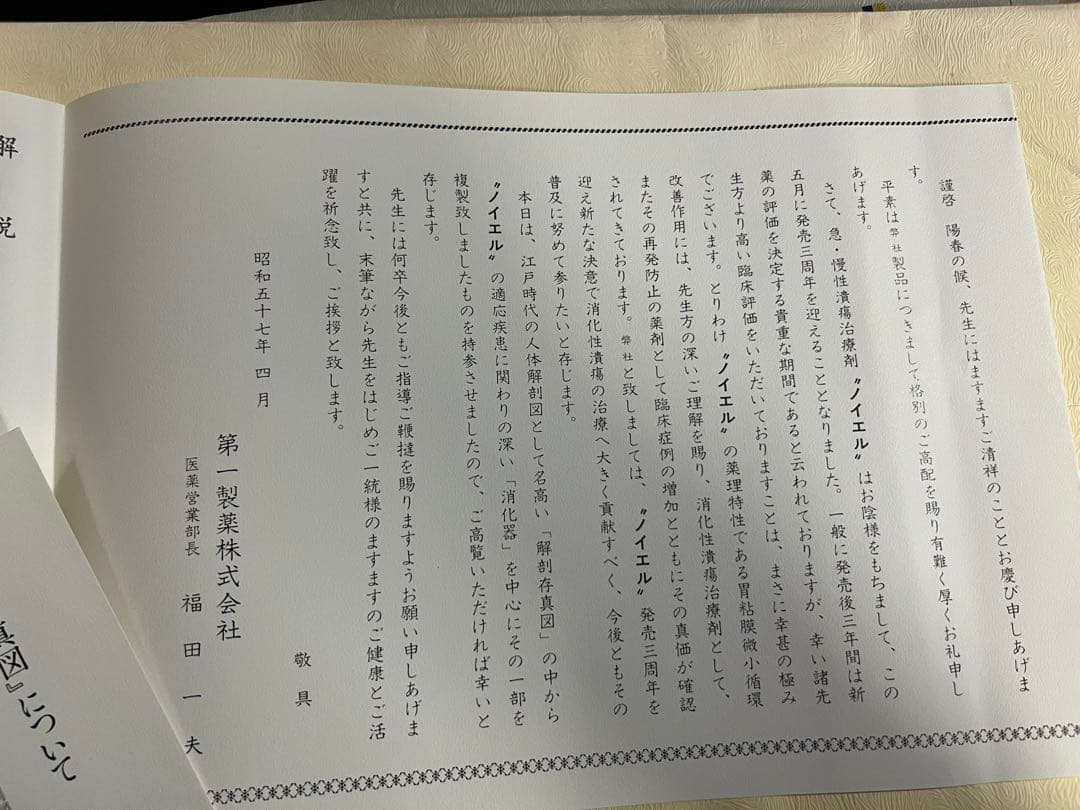 謹啓　陽春の候、先生にはますますご清祥のこととお慶び申しあげま
す。
平素は弊社製品につきまして格別のご高配を賜り有難く厚くお礼申し
あげます。
さて、急・慢性潰瘍治療剤〝ノイエル〟はお陰様をもちまして、この
五月に発売三周年を迎えることとなりました。一般に発売後三年間は新
薬の評価を決定する貴重な期間であると云われておりますが、幸い諸先
生方より高い臨床評価をいただいておりますことは、まさに幸甚の極み
でございます。とりわけ〝ノイエル〟の薬理特性である胃粘膜微小循環
改善作用には、先生方の深いご理解を賜り、消化性潰瘍治療剤として、
またその再発防止の薬剤として臨床症例の増加とともにその真価が確認
されてきております。弊社と致しましては、〝ノイエル〟発売三周年を
迎え新たな決意で消化性潰瘍の治療へ大きく貢献すべく、今後ともその
普及に努めて参りたいと存じます。
本日は、江戸時代の人体解剖図として名高い「解剖存真図」の中から
〝ノイエル〟の適応疾患に関わりの深い「消化器」を中心にその一部を
複製致しましたものを持参させましたので、ご高覧いただければ幸いと
存じます。
先生には何卒今後ともご指導ご鞭撻を賜りますようお願い申しあげま
すと共に、末筆ながら先生をはじめご一統様のますますのご健康とご活
躍を祈念致し、ご挨拶と致します。
敬具
昭和五十七年四月
第一製薬株式会社
医薬営業部長　福田一夫
解説
真図』について